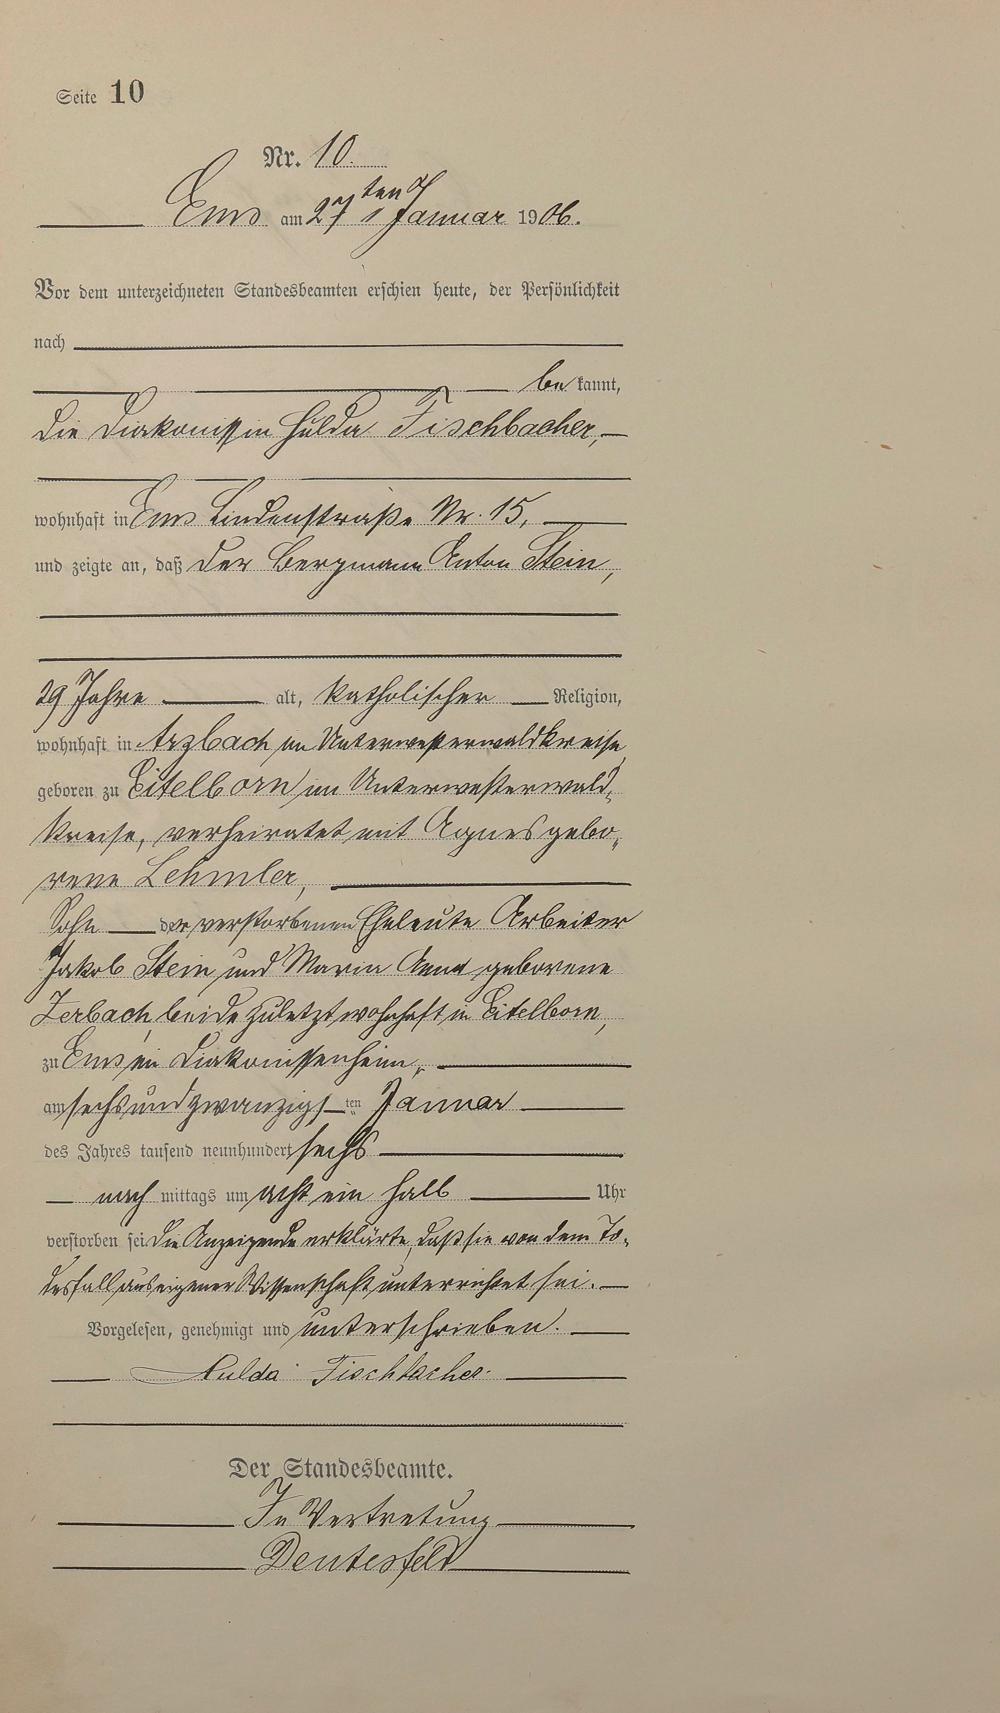 Seite 10
Nr. 10.
Ems am 27ten Januar 1906.
Vor dem unterzeichneten Standesbeamten erschien heute, der Persönlichkeit
nach
bekannt,
die Diakonissin Hulda Fischbacher,
wohnhaft in Ems Lindenstraße Nr. 15,
und zeigte an, daß der Bergmann Anton Stein,
29 Jahre alt, katholischer Religion,
wohnhaft in Arzbach im Unterwesterwaldkreise
geboren zu Eitelborn im Unterwesterwald-
kreise, verheiratet mit Agnes gebo-
rene Lehmler,
Sohn der verstorbenen Eheleute Arbeiter
Jakob Stein und Maria Anna geborene
Zerbach, beide zuletzt wohnhaft in Eitelborn,
zu Ems im Diakonissenheim,
am sechsundzwanzigsten Januar
des Jahres tausend neunhundert sechs
nachmittags um acht ein halb Uhr
verstorben sei. Die Anzeigende erklärte, daß sie von dem To-
desfall aus eigener Wissenschaft unterrichtet sei.
Vorgelesen, genehmigt und unterschrieben.
Hulda Fischbacher.
Der Standesbeamte.
In Vertretung